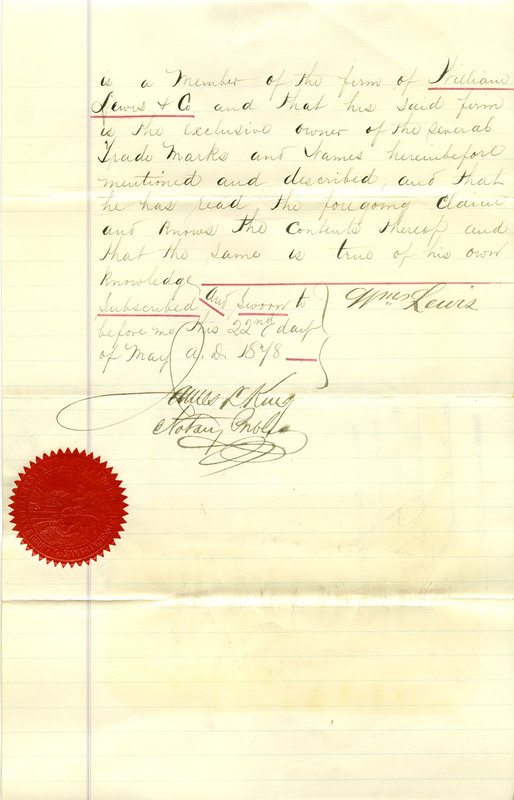 is a Member of the firm of William
Lewis & Co and that his said firm
is the exclusive owner of the several
Trade Marks and Names hereinbefore
mentioned and described, and that
he has read the foregoing Claim
and knows the Contents thereof and
that the same is true of his own
knowledge
Subscribed and Sworn to
before me this 22nd day
of May A.D. 1878
Wm Lewis
James L King
Notary Public